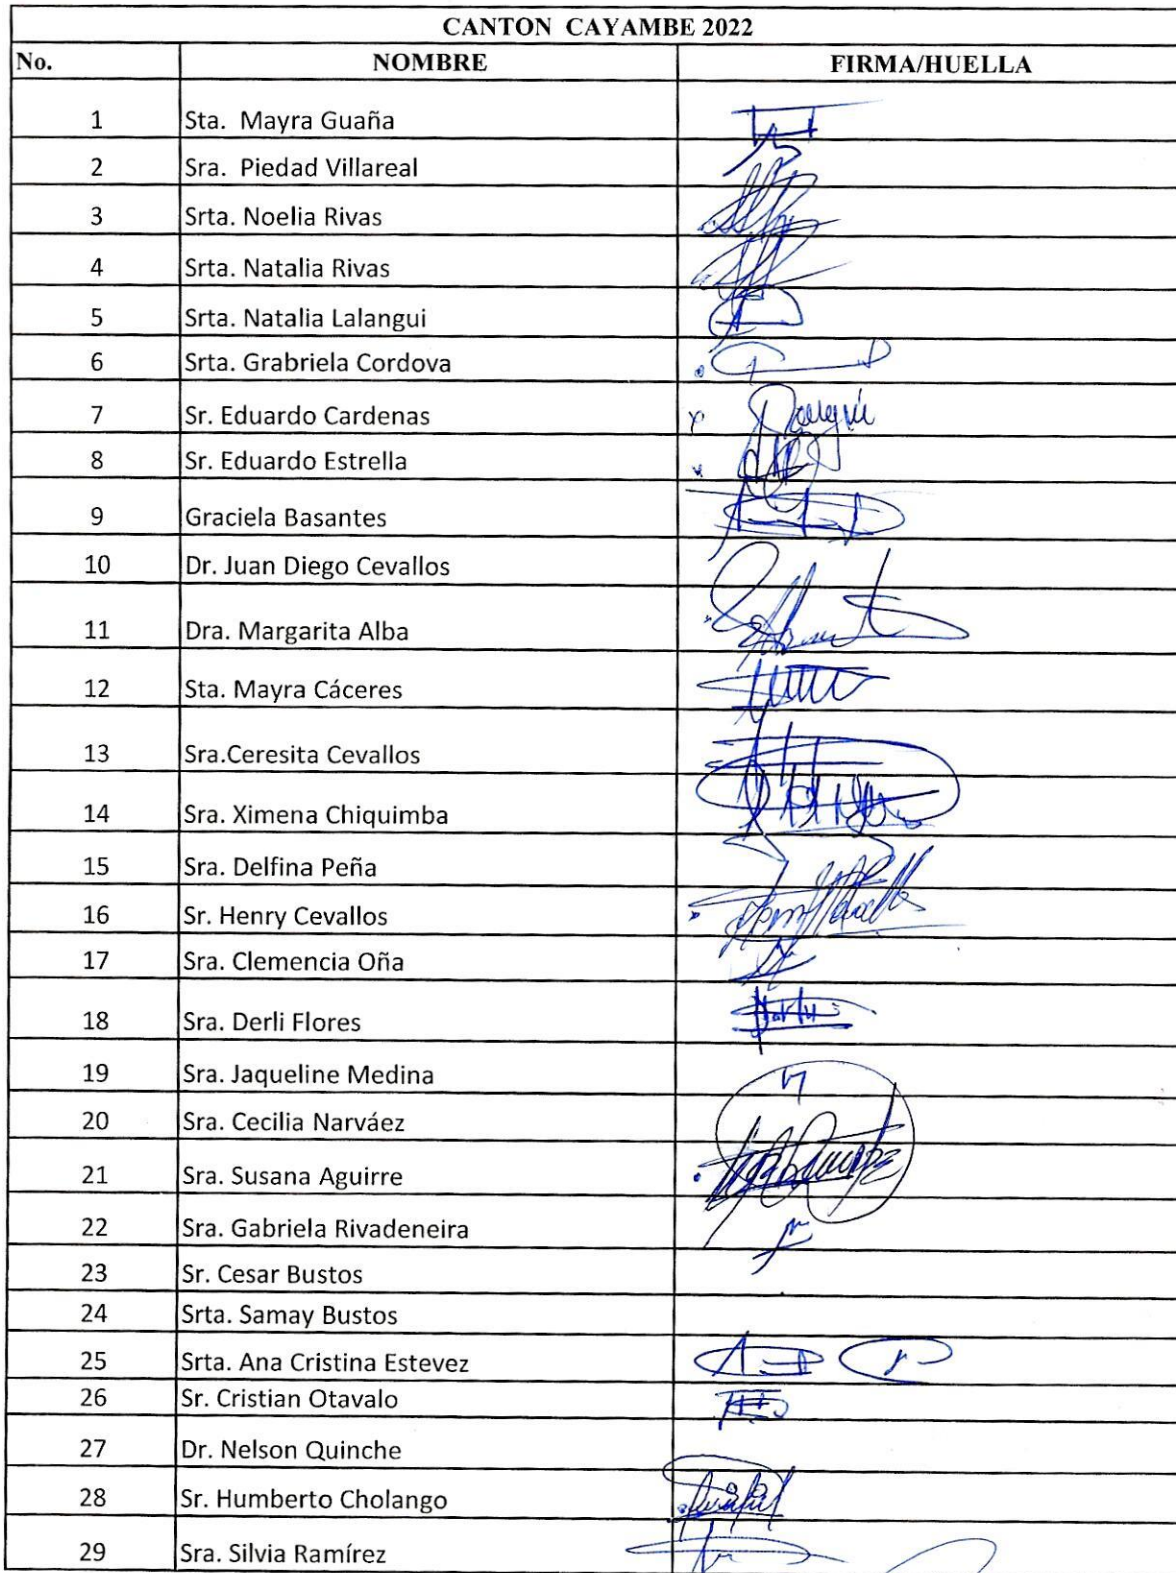 CANTON CAYAMBE 2022
No. NOMBRE FIRMA/HUELLA
1 Sta. Mayra Guaña
2 Sra. Piedad Villareal
3 Srta. Noelia Rivas
4 Srta. Natalia Rivas
5 Srta. Natalia Lalangui
6 Srta. Grabriela Cordova
7 Sr. Eduardo Cardenas
8 Sr. Eduardo Estrella
9 Graciela Basantes
10 Dr. Juan Diego Cevallos
11 Dra. Margarita Alba
12 Sta. Mayra Cáceres
13 Sra.Ceresita Cevallos
14 Sra. Ximena Chiquimba
15 Sra. Delfina Peña
16 Sr. Henry Cevallos
17 Sra. Clemencia Oña
18 Sra. Derli Flores
19 Sra. Jaqueline Medina
20 Sra. Cecilia Narváez
21 Sra. Susana Aguirre
22 Sra. Gabriela Rivadeneira
23 Sr. Cesar Bustos
24 Srta. Samay Bustos
25 Srta. Ana Cristina Estevez
26 Sr. Cristian Otavalo
27 Dr. Nelson Quinche
28 Sr. Humberto Cholango
29 Sra. Silvia Ramírez